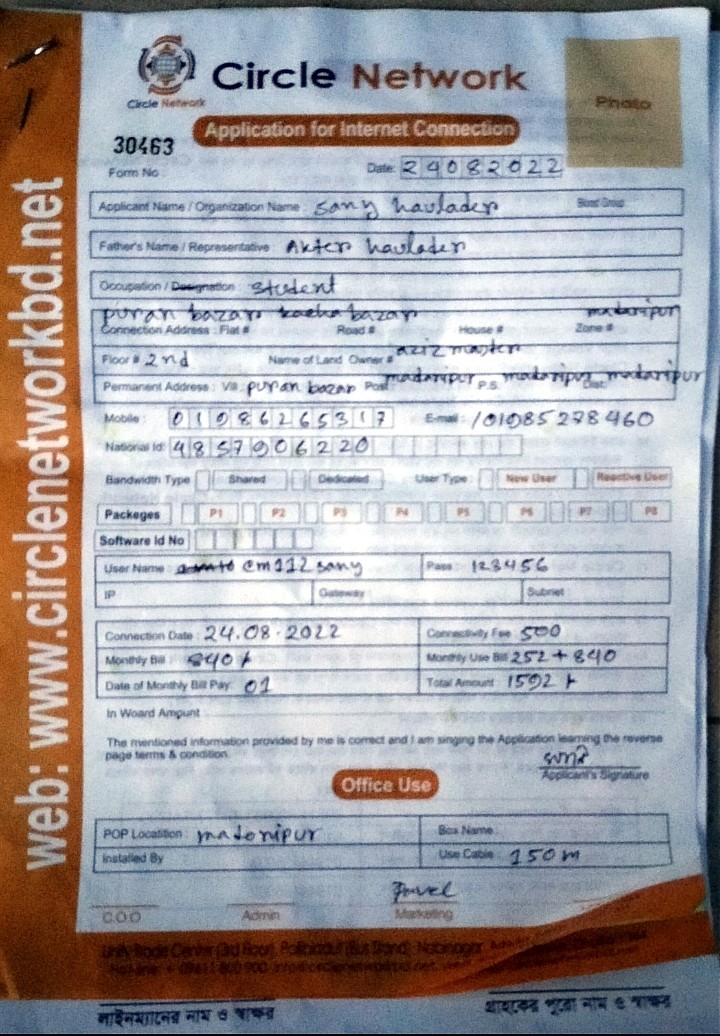 Circle Network
Circle Network
Photo
Application for Internet Connection
30463
Form No :
Date: 24082022
Applicant Name / Organization Name : Sany havlader Blood Group
Father's Name / Representative : Akter havlader
Occupation / Designation : Student
puran bazar kacha bazar madaripur
Connection Address : Flat # Road # House # Zone #
Floor # 2nd Name of Land Owner # aziz master
Permanent Address : Vill puran bazar Post madaripur P.S. madaripur Dist: madaripur
Mobile : 01986265317 E-mail : /01985278460
National Id: 4857906220
Bandwidth Type Shared Dedicated User Type : New User Reactive User
Packeges P1 P2 P3 P4 P5 P6 P7 P8
Software Id No
User Name : cm112sany Pass : 123456
IP Gateway Subnet
Connection Date : 24.08.2022 Connectivity Fee 500
Monthly Bill : 840/- Monthly Use Bill 252 + 840
Date of Monthly Bill Pay: 01 Total Amount : 1592/-
In Woard Ampunt
The mentioned information provided by me is correct and I am singing the Application learning the reverse
page terms & condition.
Applicant's Signature
Office Use
POP Locatition : madaripur Box Name :
Installed By Use Cable : 150m
C.O.O Admin Marketing
লাইনম্যানের নাম ও স্বাক্ষর গ্রাহকের পুরো নাম ও স্বাক্ষর
web: www.circlenetworkbd.net